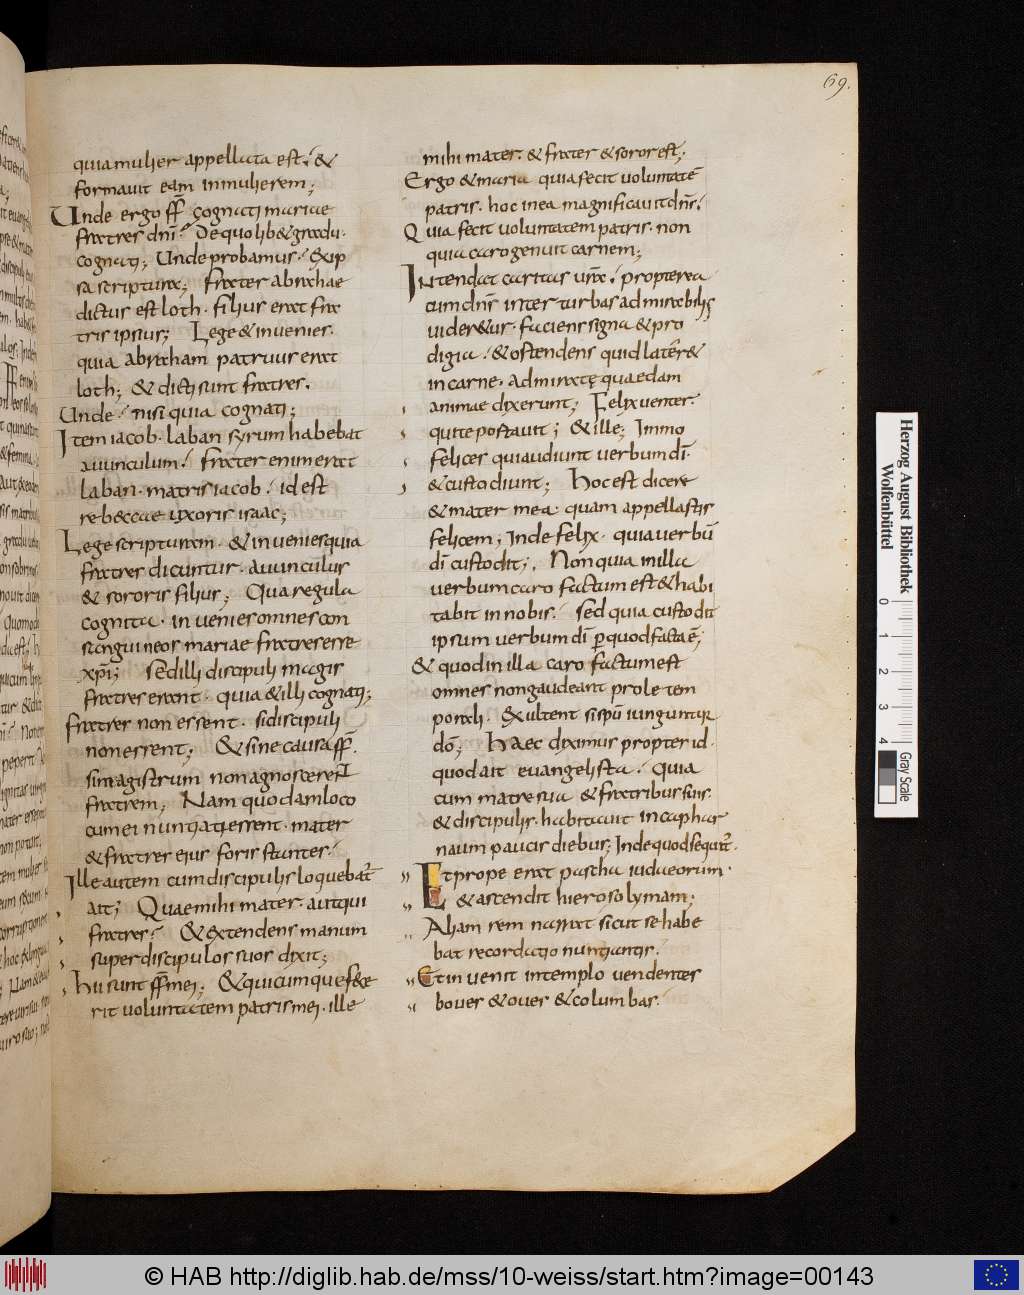 69.
quia mulier appellata est; &
formauit eam in mulierem;
Unde ergo ff̄ cognati mariae
fratres dn̄i? De quolib& gradu
cognati; Unde probamus? Exip
sa scriptura; frater abrahae
dictus est loth. filius erat fra
tris ipsius; Lege & inuenies.
quia abraham patruus erat
loth; & dicti sunt fratres.
Unde? nisi quia cognati;
Item iacob. laban syrum habebat
auunculum? frater enim erat
laban. matris iacob? id est
rebeccae uxoris isaac;
Lege scripturam. & inuenies quia
fratres dicuntur. auunculus
& sororis filius; Qua regula
cognita. inuenies omnes con
sanguineos mariae fratres esse
xp̄i; Sed illi discipuli magis
fratres erant. quia & illi cognati;
fratres non essent. si discipuli
non essent; & sine causa ff̄.
si magistrum non agnoscerent
fratrem; Nam quodam loco
cum ei nuntiati essent. mater
& fratres eius foris stantes?
Ille autem cum discipulis loquebat̄
ait; Quae mihi mater. aut qui
fratres? & extendens manum
super discipulos suos dixit;
Hii sunt ff̄ mei; & quicumque fece
rit uoluntatem patris mei. ille
mihi mater. & frater & soror est;
Ergo & maria quia fecit uoluntatē
patris. hoc in ea magnificauit dn̄s?
Quia fecit uoluntatem patris. non
quia caro genuit carnem;
Intendat caritas ur̄a? propterea
cum dn̄s inter turbas admirabilis
uider&ur. faciens signa & pro
digia? & ostendens quid later&
in carne. admiratę quaedam
animae dixerunt; Felix uenter.
qui te portauit; & ille; Immo
felices qui audiunt uerbum dī.
& custodiunt; Hoc est dicere
& mater mea quam appellastis
felicem; Inde felix. quia uerbū
dī custodit; Non quia in illa
uerbum caro factum est & habi
tabit in nobis? Sed quia custodit
ipsum uerbum dī ꝑ quod facta ē;
& quod in illa caro factum est
omnes non gaudeant prole tem
porali. Exultent si spū iunguntur
dō; Haec diximus propter id.
quod ait euangelista? Quia
cum matre sua & fratribus suis.
& discipulis. habitauit in caphar
naum paucis diebus; Inde quod sequit̄.
Et prope erat pascha iudaeorum.
& ascendit hierosolymam;
Aliam rem narrat sicut se habe
bat recordatio nuntiantis?
Et inuenit in templo uendentes
boues & oues & columbas?
Herzog August Bibliothek
Wolfenbüttel
0 1 2 3 4
Gray Scale
© HAB http://diglib.hab.de/mss/10-weiss/start.htm?image=00143